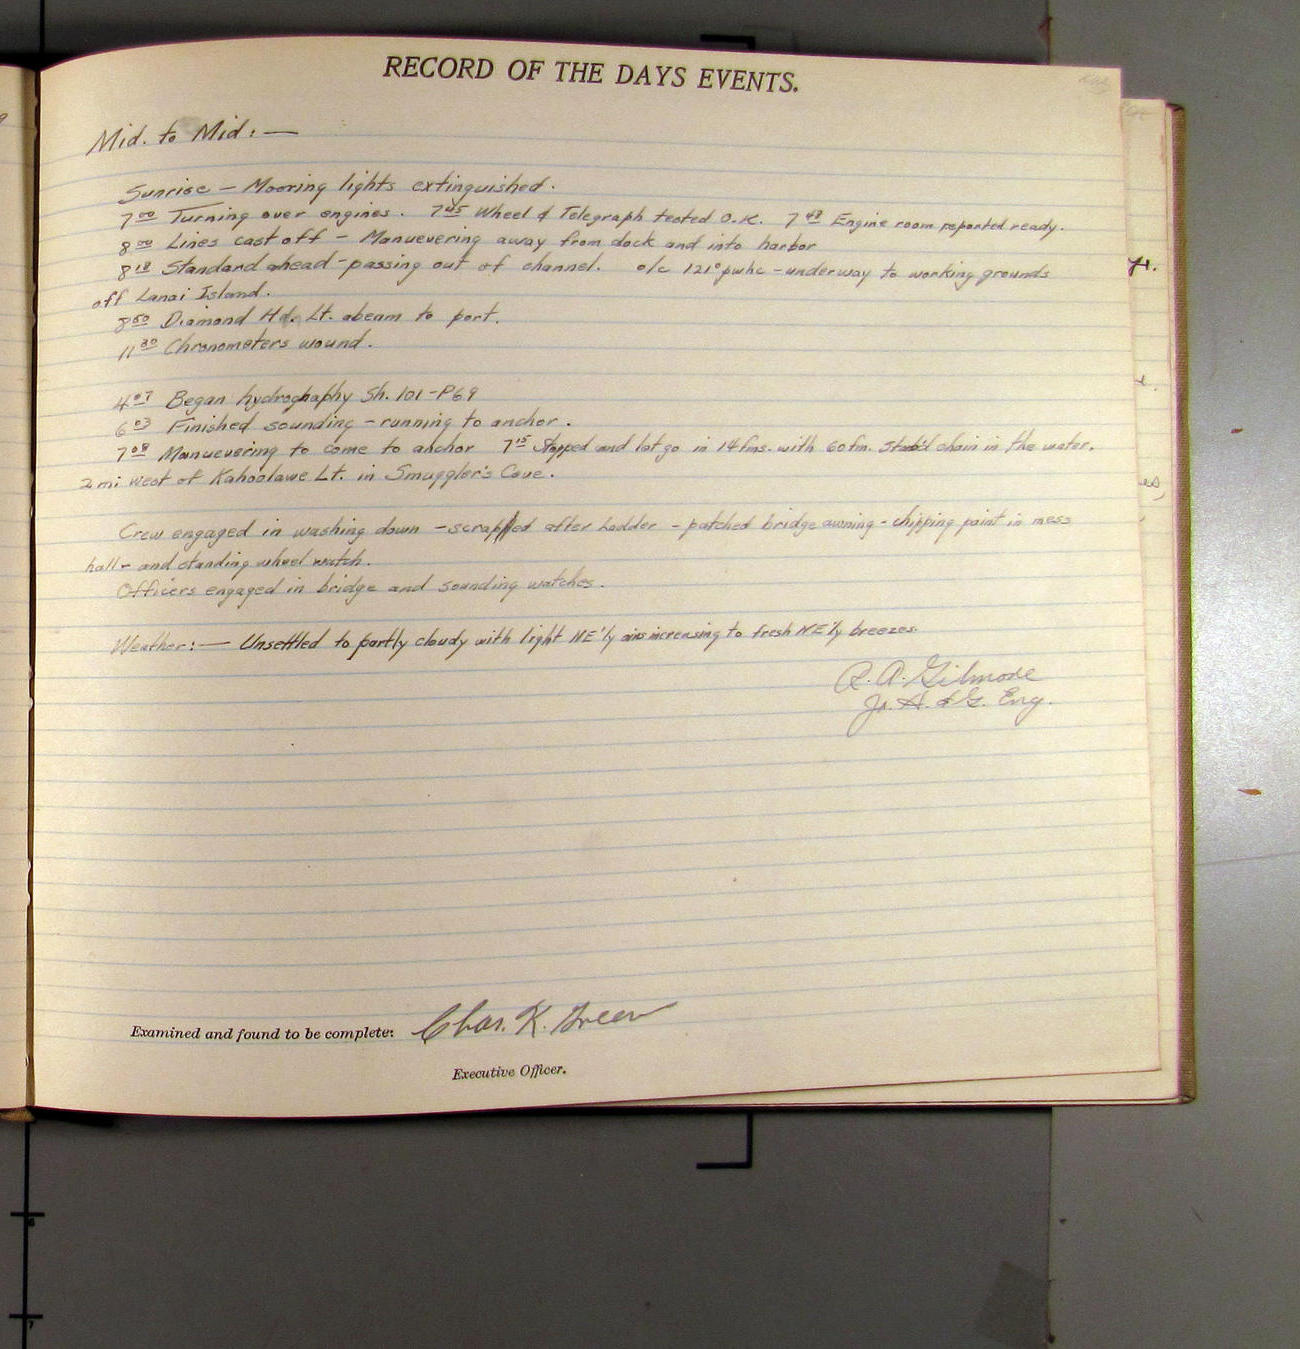 RECORD OF THE DAYS EVENTS.
Mid. to Mid: —
Sunrise — Mooring lights extinguished.
7 00 Turning over engines. 7 45 Wheel & Telegraph tested O.K. 7 49 Engine room reported ready.
8 00 Lines cast off — Manuevering away from dock and into harbor
8 18 Standard ahead - passing out of channel. o/c 121° pwhc - underway to working grounds
off Lanai Island.
8 50 Diamond Hd. Lt. abeam to port.
11 30 Chronometers wound.
4 07 Began hydrography Sh. 101 - P69
6 03 Finished sounding - running to anchor.
7 08 Manuevering to come to anchor 7 15 Stopped and let go in 14 fms. with 60 fm. Stab'd chain in the water.
2 mi west of Kahoolawe Lt. in Smuggler's Cove.
Crew engaged in washing down - scrapped after ladder - patched bridge awning - chipping paint in mess
hall - and standing wheel watch.
Officers engaged in bridge and sounding watches.
Weather: — Unsettled to partly cloudy with light NE'ly airs increasing to fresh NE'ly breezes.
R. A. Gilmore
Jr. H. & G. Eng.
Examined and found to be complete: Chas. K. Green
Executive Officer.